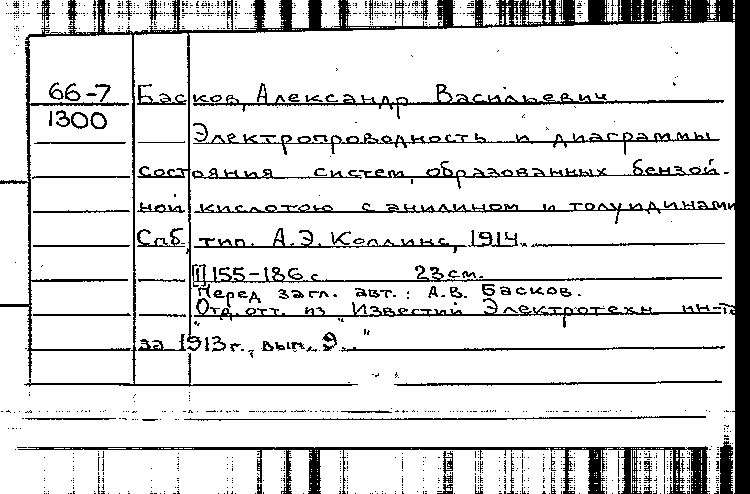 66-7
1300
Басков, Александр Васильевич
Электропроводность и диаграммы
состояния систем, образованных бензой-
ной кислотою с анилином и толуидинами
Спб, тип. А.Э. Коллинс, 1914.
155-186 с 23 см.
Перед загл. авт.: А.В. Басков.
Отд. отт. из "Известий Электротехн. ин-та
за 1913 г., вып. 9.."